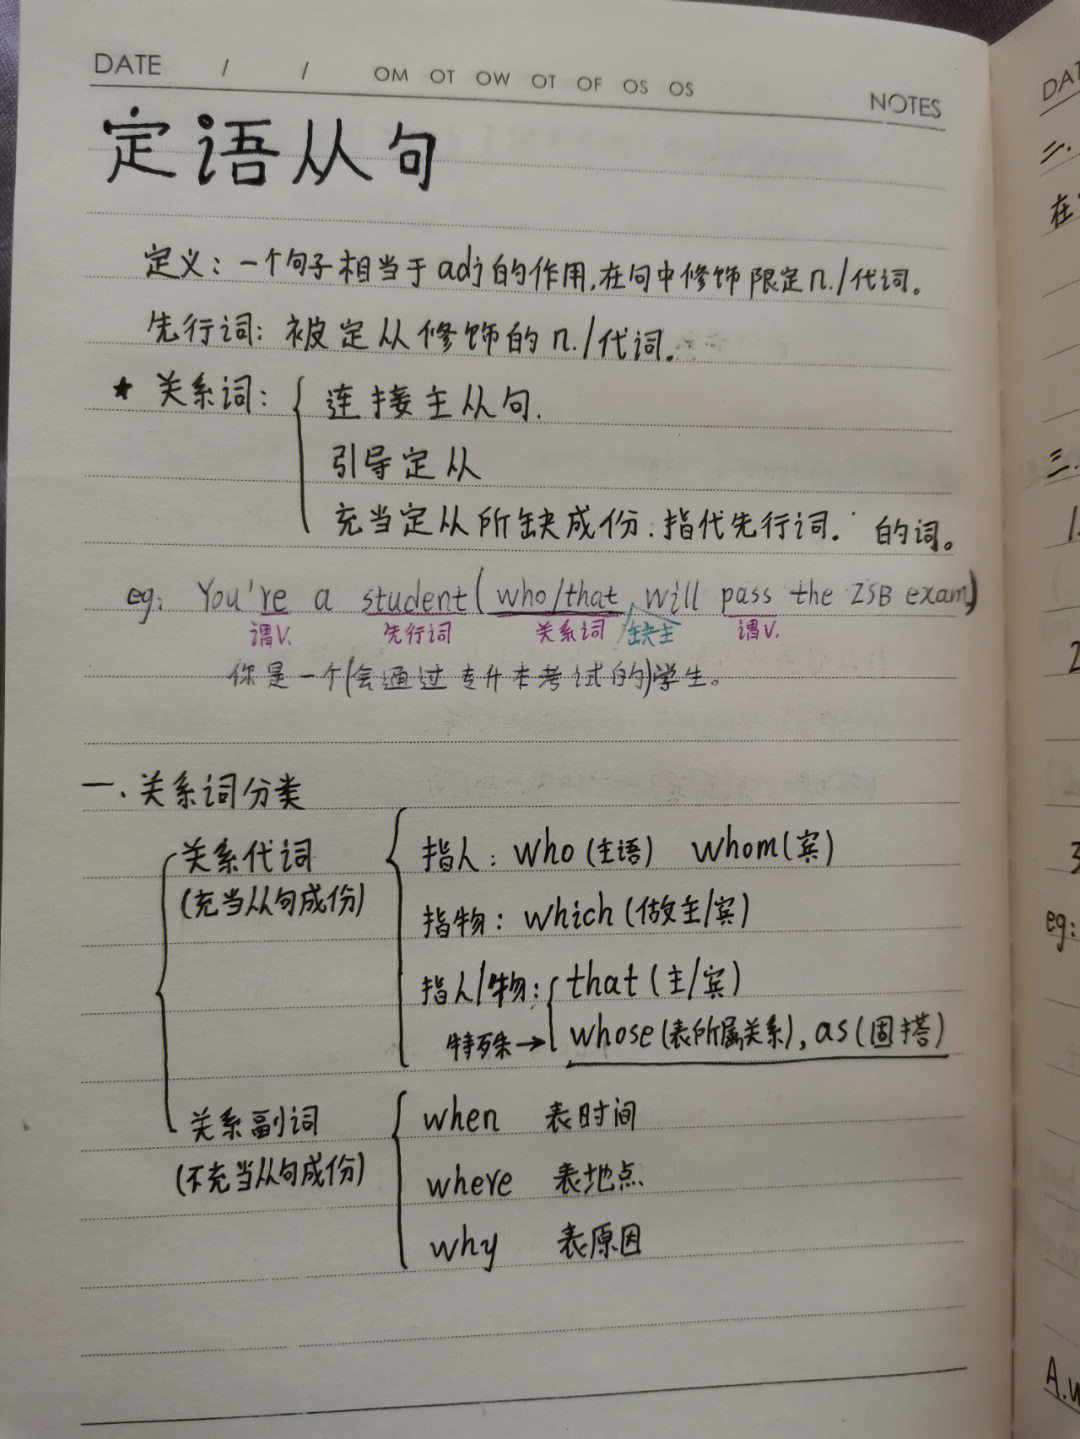 DATE / / OM OT OW OT OF OS OS NOTES
定语从句
定义:一个句子相当于adj的作用,在句中修饰限定n./代词。
先行词:被定从修饰的n./代词.
★ 关系词:
连接主从句.
引导定从
充当定从所缺成份.指代先行词. 的词。
eg: You're a student (who/that will pass the ZSB exam)
谓V. 先行词 关系词 缺主 谓V.
你是一个(会通过专升本考试的)学生。
一、关系词分类
关系代词
(充当从句成份)
指人:who(主语) whom(宾)
指物:which(做主/宾)
指人/物:that(主/宾)
特殊→ whose(表所属关系),as(固搭)
关系副词
(不充当从句成份)
when 表时间
where 表地点
why 表原因
DAT
二.
在
三.
1.
2
3
eg:
A.w